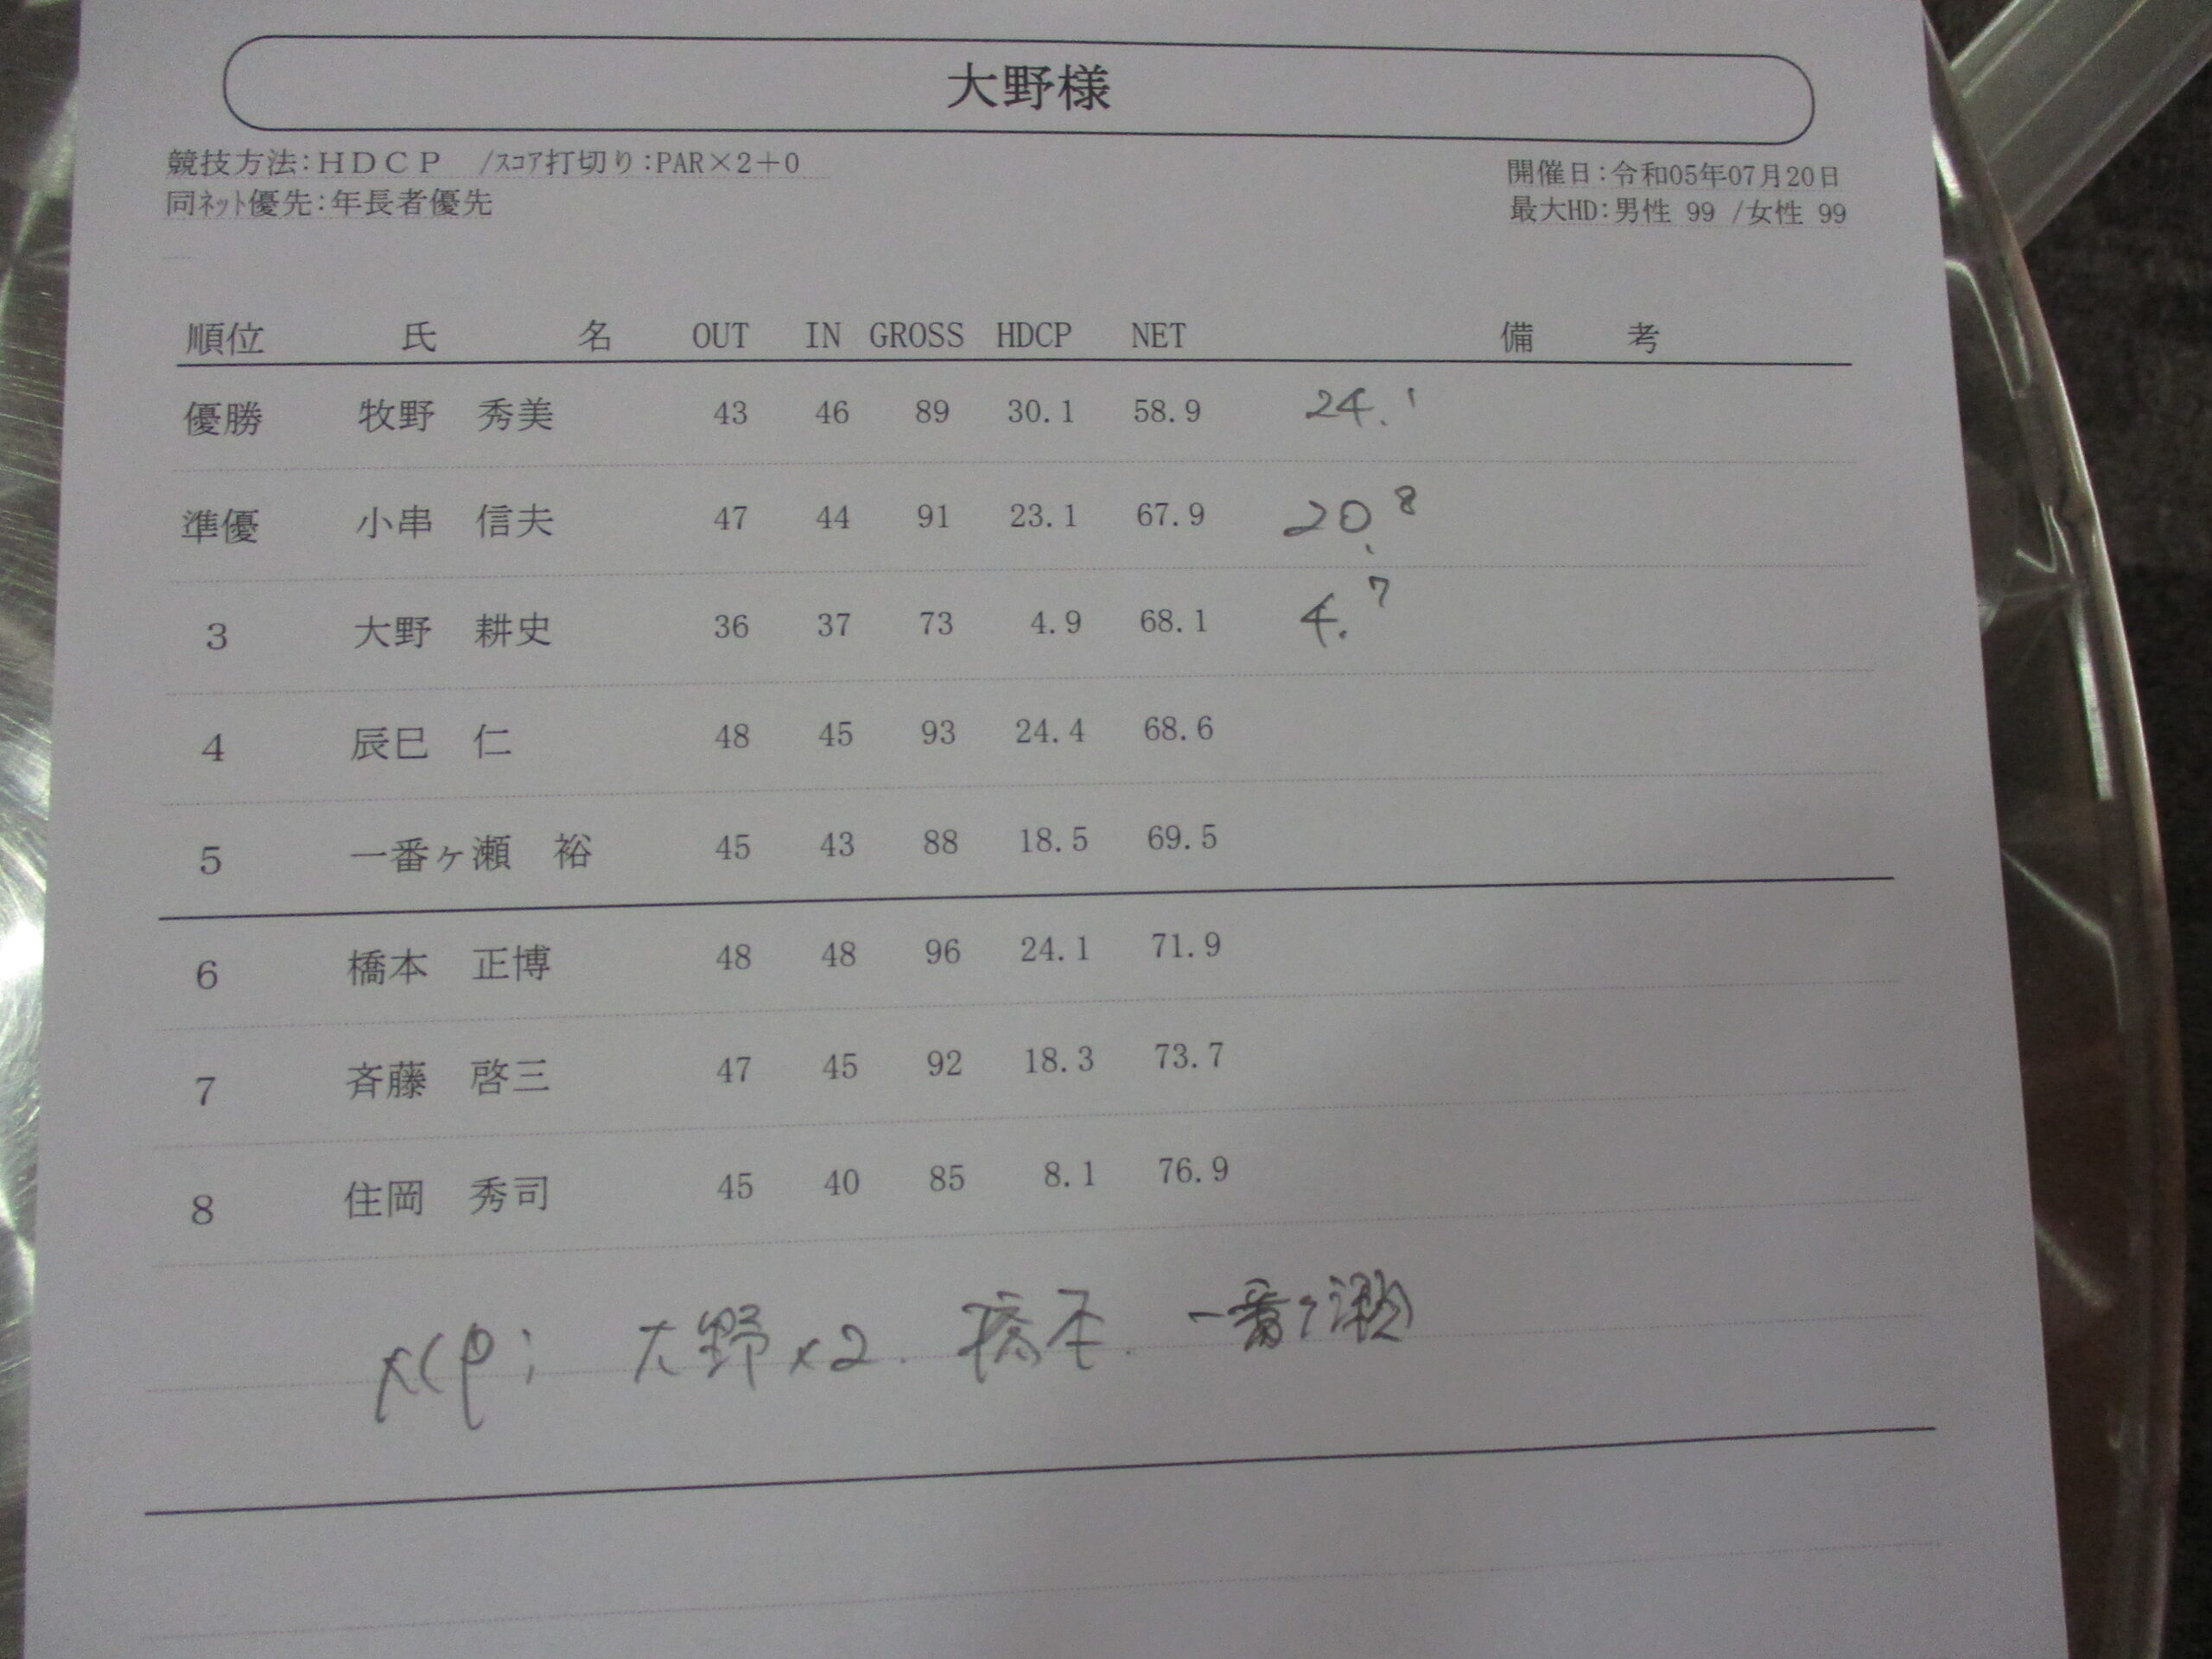 大野様
競技方法:HDCP /ｽｺｱ打切り:PAR×2+0
同ﾈｯﾄ優先:年長者優先
開催日:令和05年07月20日
最大HD:男性 99 /女性 99
順位 氏 名 OUT IN GROSS HDCP NET 備 考
優勝 牧野 秀美 43 46 89 30.1 58.9 24.1
準優 小串 信夫 47 44 91 23.1 67.9 20.8
3 大野 耕史 36 37 73 4.9 68.1 4.7
4 辰巳 仁 48 45 93 24.4 68.6
5 一番ヶ瀬 裕 45 43 88 18.5 69.5
6 橋本 正博 48 48 96 24.1 71.9
7 斉藤 啓三 47 45 92 18.3 73.7
8 住岡 秀司 45 40 85 8.1 76.9
大野×2. 橋本. 一番ヶ瀬